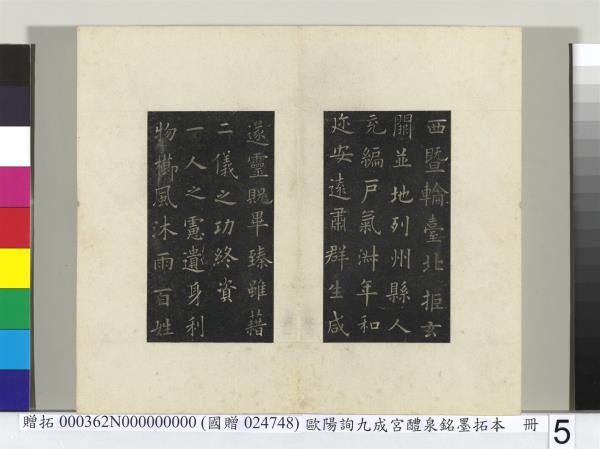 西暨輪臺北拒玄
闕並地列州縣人
充編戶氣淋年和
迩安遠肅群生咸
遂靈貺畢臻雖藉
二儀之功終資
一人之慮遺身利
物櫛風沐雨百姓
贈拓 000362N000000000 (國贈 024748) 歐陽詢九成宮醴泉銘墨拓本 冊 5